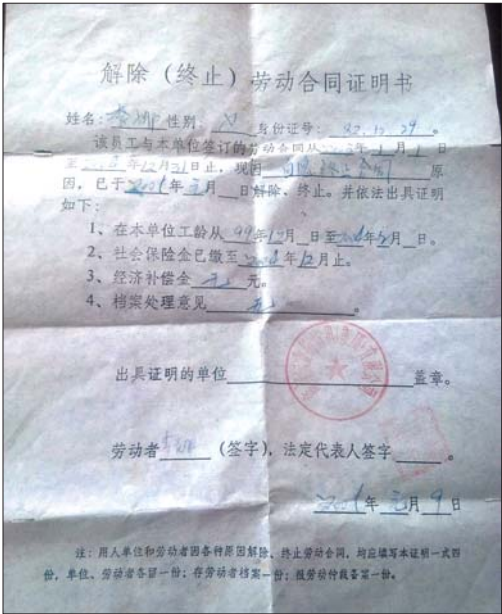 解除（终止）劳动合同证明书
姓名：李娜 性别：女 身份证号：82.12.29。
该员工与本单位签订的劳动合同从 年1月1日
至 年12月31日止，现因 终止合同 原
因，已于 年元月 日解除、终止。并依法出具证明
如下：
1、在本单位工龄从99年12月 日至 年 月 日。
2、社会保险金已缴至 年12月止。
3、经济补偿金 无 元。
4、档案处理意见 无 。
出具证明的单位 盖章。
劳动者 李娜 （签字），法定代表人签字 。
年元月9日
注：用人单位和劳动者因各种原因解除、终止劳动合同，均应填写本证明一式四
份，单位、劳动者各留一份；存劳动者档案一份；报劳动仲裁备案一份。